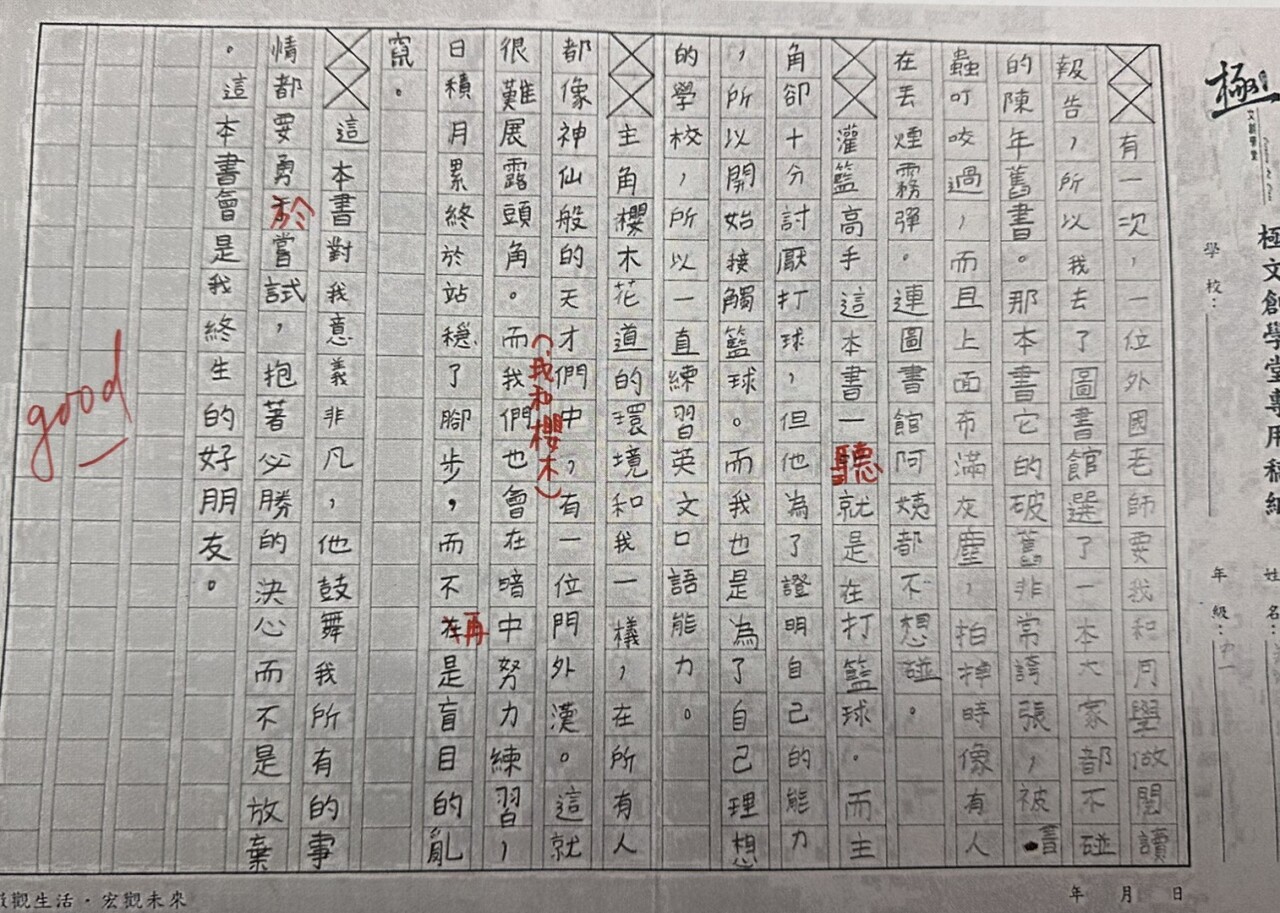 極
文創學堂
極文創學堂專用稿紙
學校：
年級：中一
姓名：
有一次，一位外國老師要我和同學做閱讀
報告，所以我去了圖書館選了一本大家都不碰
的陳年舊書。那本書它的破舊非常誇張，被書
蟲叮咬過，而且上面布滿灰塵，拍掉時像有人
在丟煙霧彈。連圖書館阿姨都不想碰。
灌籃高手這本書一聽就是在打籃球。而主
角卻十分討厭打球，但他為了證明自己的能力
，所以開始接觸籃球。而我也是為了自己理想
的學校，所以一直練習英文口語能力。
主角櫻木花道的環境和我一樣，在所有人
都像神仙般的天才們中，有一位門外漢。這就
（我和櫻木）
很難展露頭角。而我們也會在暗中努力練習，
日積月累終於站穩了腳步，而不在再是盲目的亂
竄。
這本書對我意義非凡，他鼓舞我所有的事
情都要勇於嘗試，抱著必勝的決心而不是放棄
。這本書會是我終生的好朋友。
good
年 月 日
微觀生活·宏觀未來